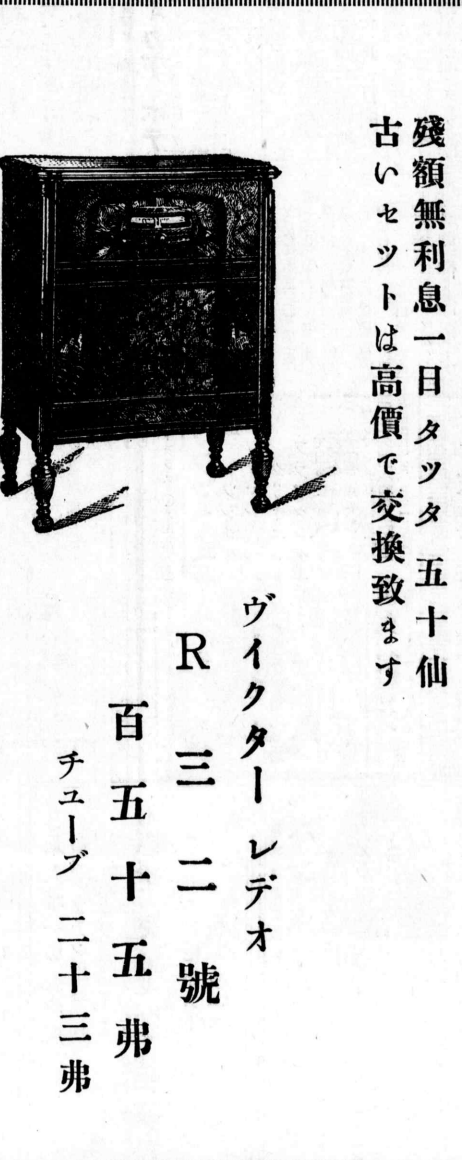 殘額無利息一日タツタ五十仙
古いセツトは高價で交換致ます
ヴイクターレデオ
R三二號
百五十五弗
チューブ二十三弗